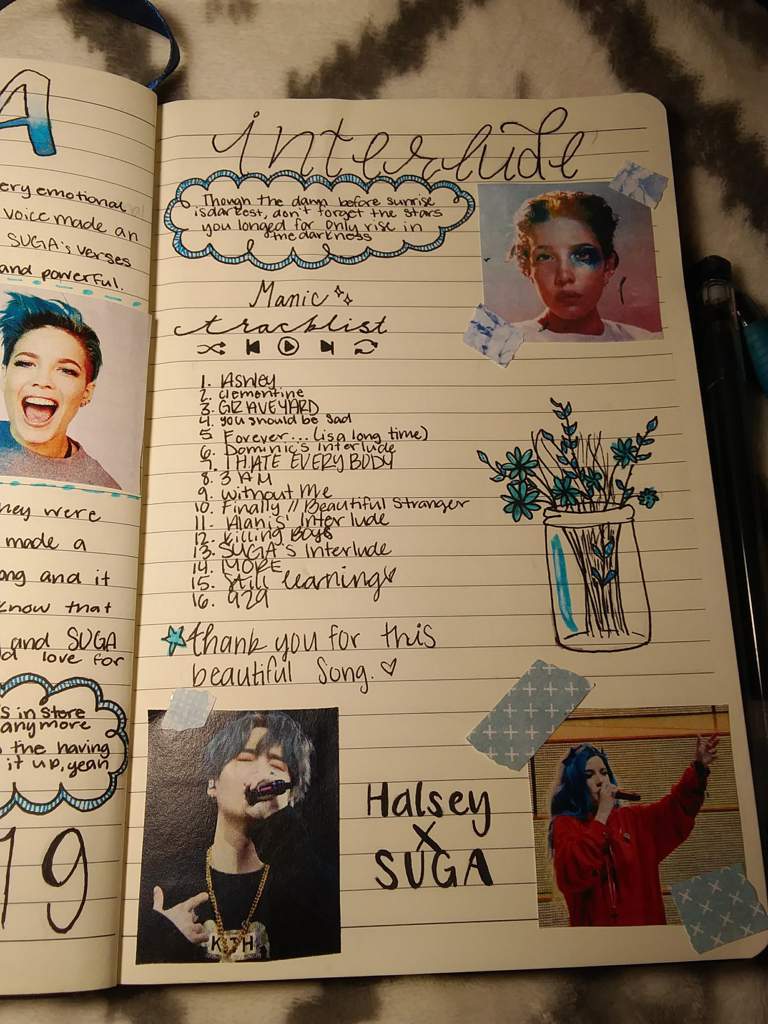 A
ery emotional
voice made an
SUGA's verses
and powerful.
hey were
made a
ong and it
know that
and SUGA
d love for
s in store
anymore
the having
it up, yeah
19
interlude
Though the damn before sunrise
is darkest, don't forget the stars
you longed for only rise in
the darkness
Manic
tracklist
1. Ashley
2. clementine
3. GRAVEYARD
4. you should be sad
5. Forever... (is a long time)
6. Dominic's Interlude
7. I HATE EVERYBODY
8. 3 AM
9. without Me
10. Finally // Beautiful Stranger
11. Alanis' Interlude
12. killing Boys
13. SUGA's Interlude
14. MORE
15. Still learning
16. 929
thank you for this
beautiful song.
Halsey
X
SUGA